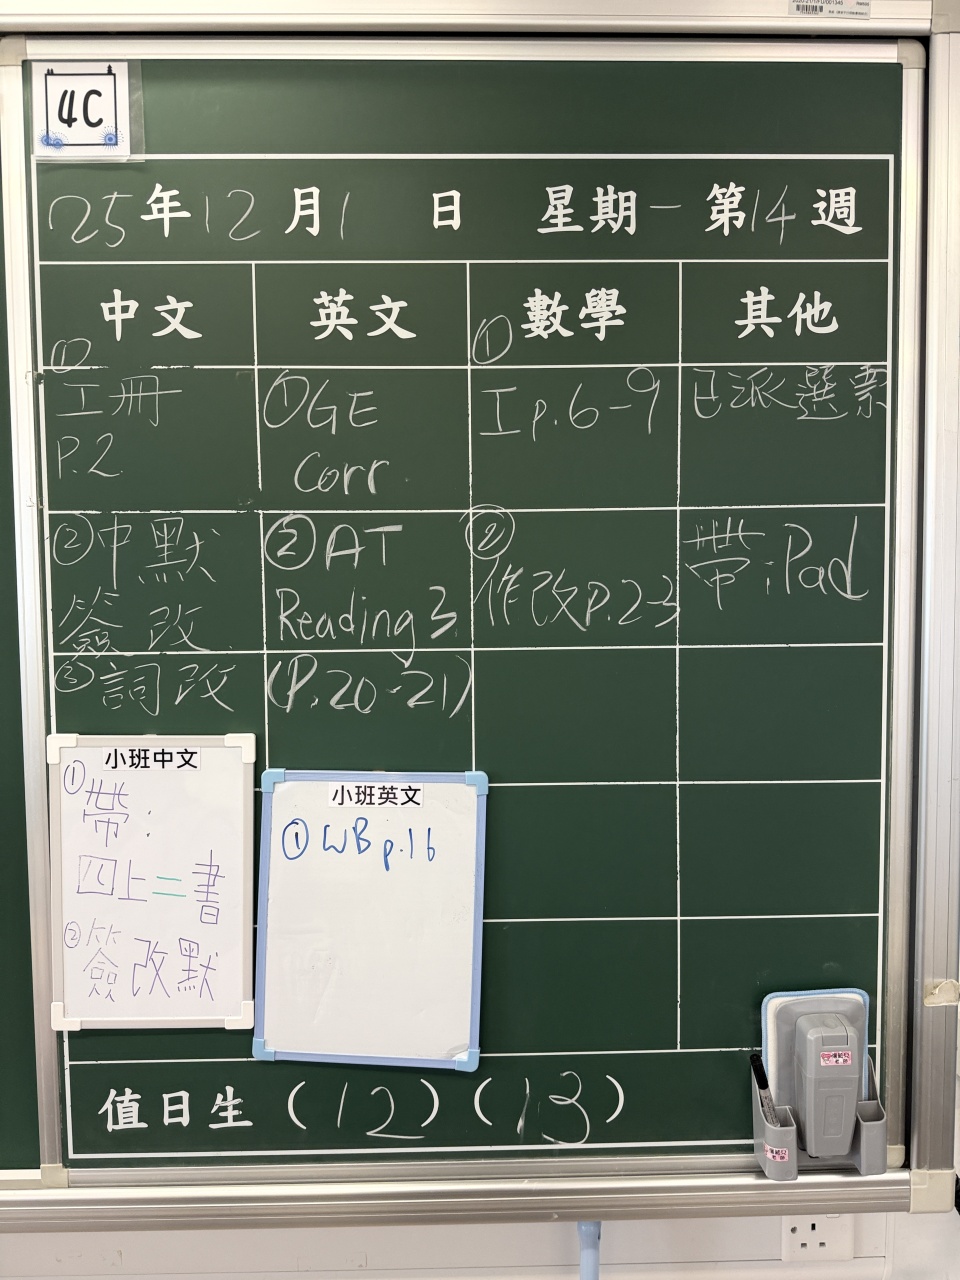 4C
25年12月1日 星期一 第14週
中文 英文 數學 其他
①
工冊
P.2
②中默
簽改
③詞改
①GE
Corr.
②AT
Reading 3
(P.20-21)
①
工p.6-9
②
作改p.2-3
已派選票
帶iPad
小班中文
①帶:
四上二書
②簽改默
小班英文
①WB p.16
值日生(12)(13)